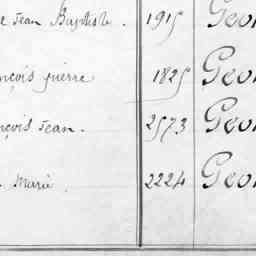 e Jean Baptiste. 1915 Geor
nçois pierre 1825 Geor
nçois Jean. 2573 Geor
Marie 2224 Geor